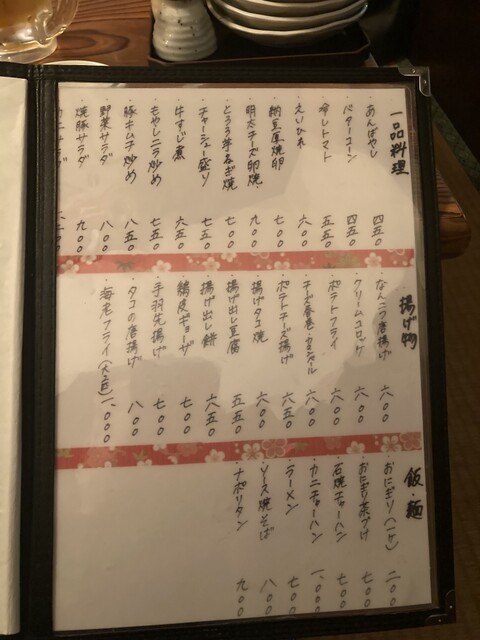 一品料理
・あんばやし 四五〇
・バターコーン 四五〇
・冷しトマト 五五〇
・えいひれ 六〇〇
・納豆厚焼卵 七〇〇
・明太チーズ卵焼 九〇〇
・とろろ芋ねぎ焼 七〇〇
・チャーシュー盛り 七五〇
・牛すじ煮 六五〇
・もやしニラ炒め 七五〇
・豚キムチ炒め 八五〇
・野菜サラダ 八〇〇
・焼豚サラダ 九〇〇
揚げ物
・なんこつ唐揚げ 六〇〇
・クリームコロッケ 六〇〇
・ポテトフライ 六〇〇
・チーズ春巻・カマンベール 六〇〇
・ポテトチーズ揚げ 六五〇
・揚げタコ焼 六〇〇
・揚げ出し豆腐 五五〇
・揚げ出し餅 六五〇
・鶏皮ギョーザ 七〇〇
・手羽先揚げ 七〇〇
・タコの唐揚げ 八〇〇
・海老フライ(大二匹) 一、〇〇〇
飯・麺
・おにぎり(一ケ) 二〇〇
・おにぎり茶づけ 七〇〇
・石焼チャーハン 七〇〇
・カニチャーハン 一、〇〇〇
・ラーメン 七〇〇
・ソース焼そば 八〇〇
・ナポリタン 九〇〇